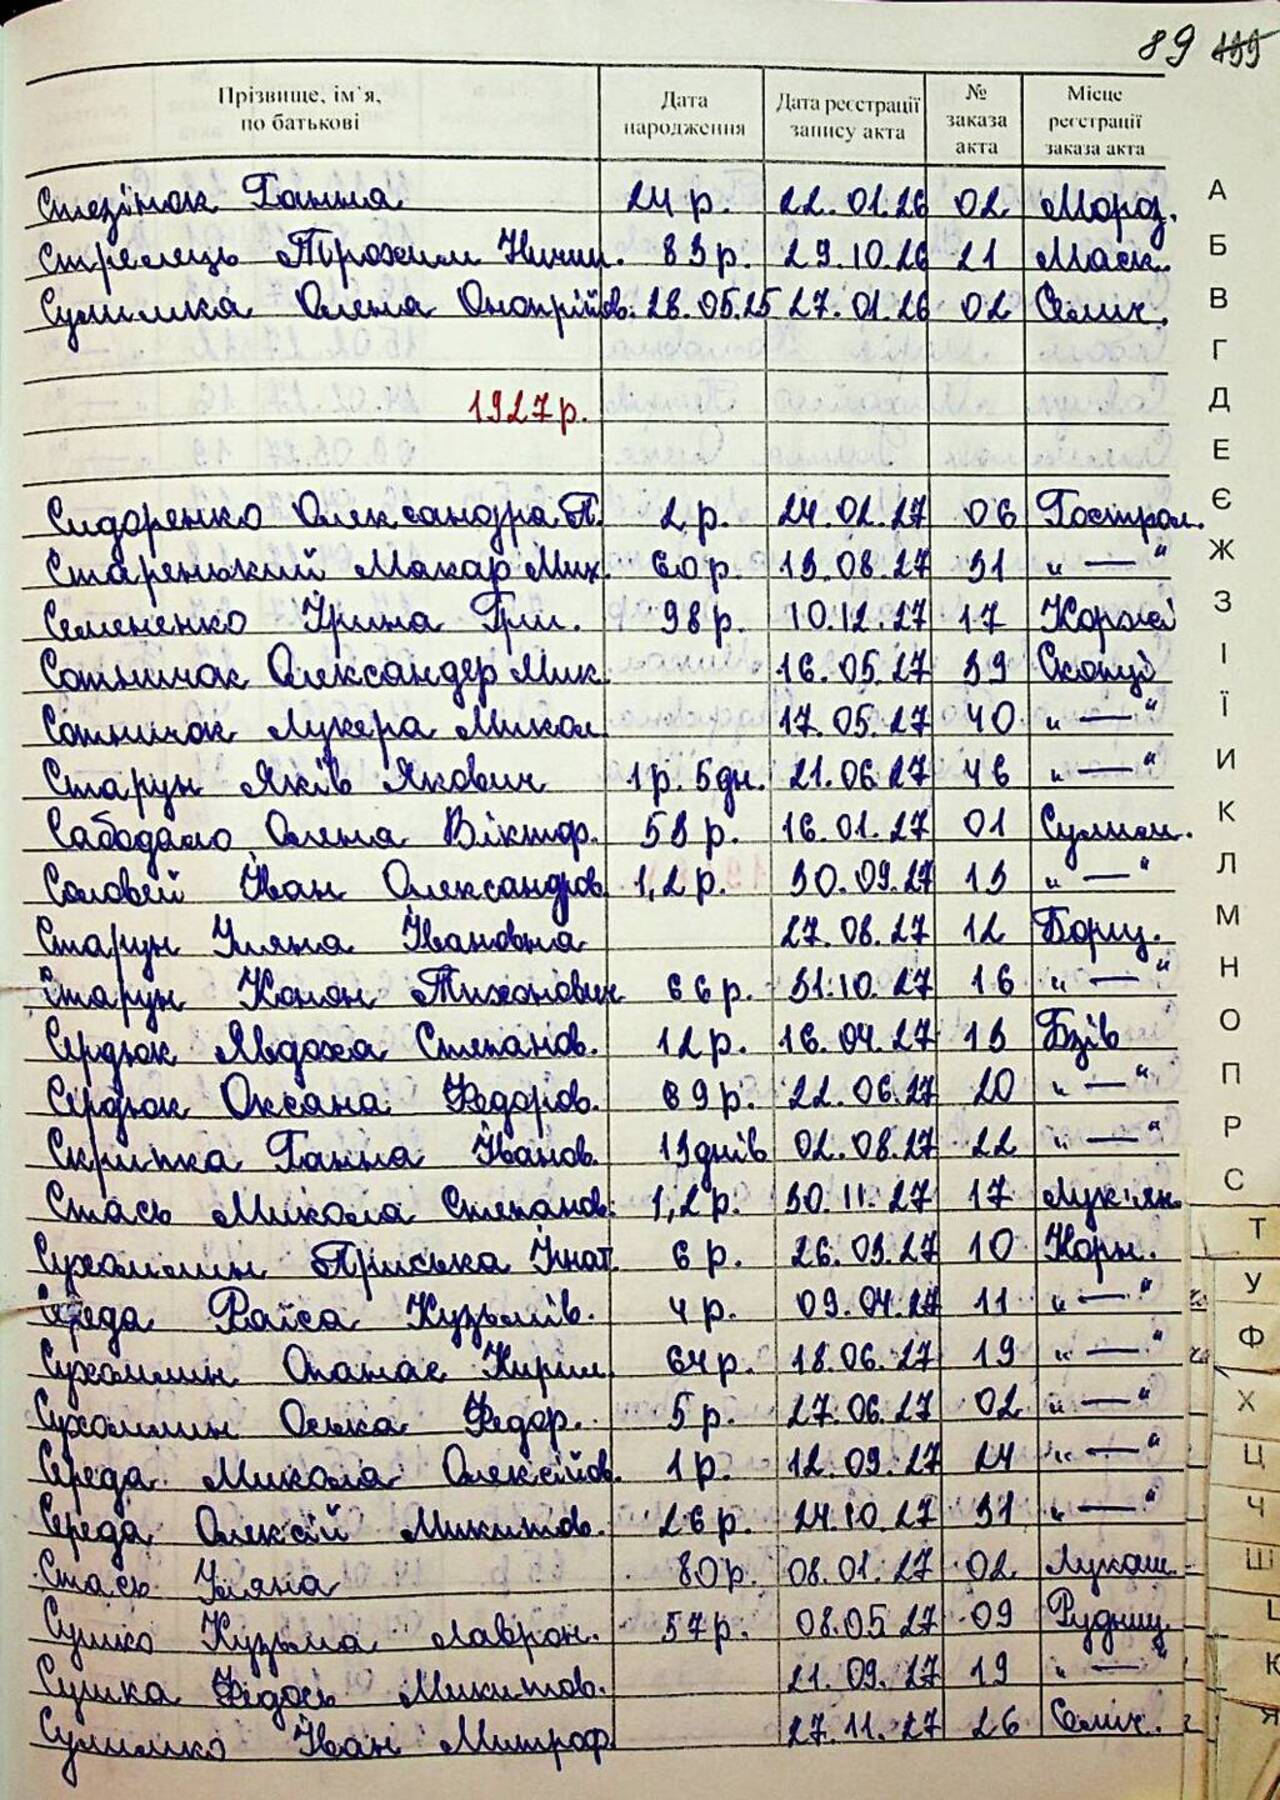 89 199
Прізвище, ім'я, по батькові Дата народження Дата реєстрації запису акта № заказа акта Місце реєстрації заказа акта
Ганна 24 р. 22.01.26 02 Мороз.
Стрелець Трохим Ничип. 83 р. 29.10.26 21 Маск.
Сулимка Олена Онопрійов. 28.05.25 27.01.26 02 Селич.
1927 р.
Сидоренко Олександра П. 2 р. 24.02.27 06 Гострол.
Старенький Макар Мих. 60 р. 13.08.27 31 "—"
Семененко Ірина Гри. 98 р. 10.12.27 17 Коржі
Сотничок Олександер Мик. 16.05.27 39 Скопці
Сотничок Лукера Микол. 17.05.27 40 "—"
Старун Яків Якович 1 р. 5 дн. 21.06.27 46 "—"
Сабодало Олена Віктор. 53 р. 16.01.27 01 Сулим.
Соловей Іван Олександров. 1,2 р. 30.09.27 13 "—"
Старун Уляна Івановна 27.08.27 12 Борщ.
Старун Конон Тихонович 66 р. 31.10.27 16 "—"
Сердюк Явдоха Степанов. 12 р. 16.04.27 13 Бзів
Сердюк Оксана Федоров. 69 р. 22.06.27 20 "—"
Скрипка Ганна Іванов. 13 днів 02.08.27 22 "—"
Стась Микола Степанов. 1,2 р. 30.11.27 17 Лук'ян.
Сухомлин Приська Ігнат. 6 р. 26.03.27 10 Корн.
Середа Раїса Кузьмів. 4 р. 09.04.27 11 "—"
Сухомлин Опанас Кирил. 64 р. 18.06.27 19 "—"
Сухомлин Оська Федор. 5 р. 27.06.27 02 "—"
Середа Микола Олексійов. 1 р. 12.09.27 24 "—"
Середа Олексій Микитов. 26 р. 24.10.27 31 "—"
Стась Уляна 80 р. 08.01.27 02 Лукаш.
Сушко Кузьма Лаврон. 57 р. 08.05.27 09 Рудниц.
Сушка Федось Микитов. 21.09.27 19 "—"
Сулимко Іван Митроф. 27.11.27 26 Селич.
А
Б
В
Г
Д
Е
Є
Ж
З
І
Ї
И
К
Л
М
Н
О
П
Р
С
Т
У
Ф
Х
Ц
Ч
Ш
Я